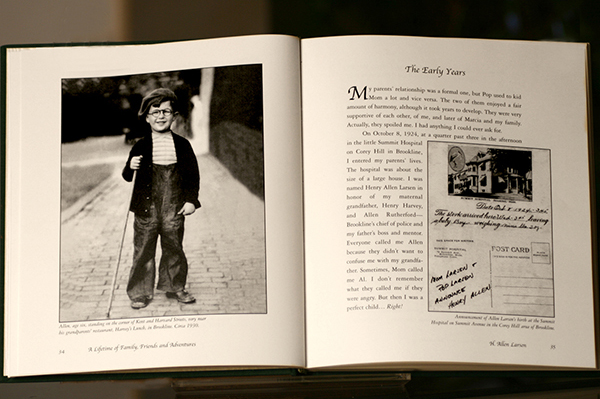 Allen, age six, standing on the corner of Kent and Harvard Streets, very near
his grandparents' restaurant, Harvey's Lunch, in Brookline. Circa 1930.
54
A Lifetime of Family, Friends and Adventures
The Early Years
My parents' relationship was a formal one, but Pop used to kid
Mom a lot and vice versa. The two of them enjoyed a fair
amount of harmony, although it took years to develop. They were very
supportive of each other, of me, and later of Marcia and my family.
Actually, they spoiled me. I had anything I could ever ask for.
On October 8, 1924, at a quarter past three in the afternoon
in the little Summit Hospital
on Corey Hill in Brookline,
I entered my parents' lives.
The hospital was about the
size of a large house. I was
named Henry Allen Larsen in
honor of my maternal
grandfather, Henry Harvey,
and Allen Rutherford—
Brookline's chief of police and
my father's boss and mentor.
Everyone called me Allen
because they didn't want to
confuse me with my grandfa-
ther. Sometimes, Mom called
me Al. I don't remember
what they called me if they
were angry. But then I was a
perfect child… Right!
The stork arrived here
Baby Boy weighing
POST CARD
MOM LARSEN +
POP LARSEN
ANNOUNCE
HENRY ALLEN
Announcement of Allen Larsen's birth at the Summit
Hospital on Summit Avenue in the Corey Hill area of Brookline
H. Allen Larsen
55